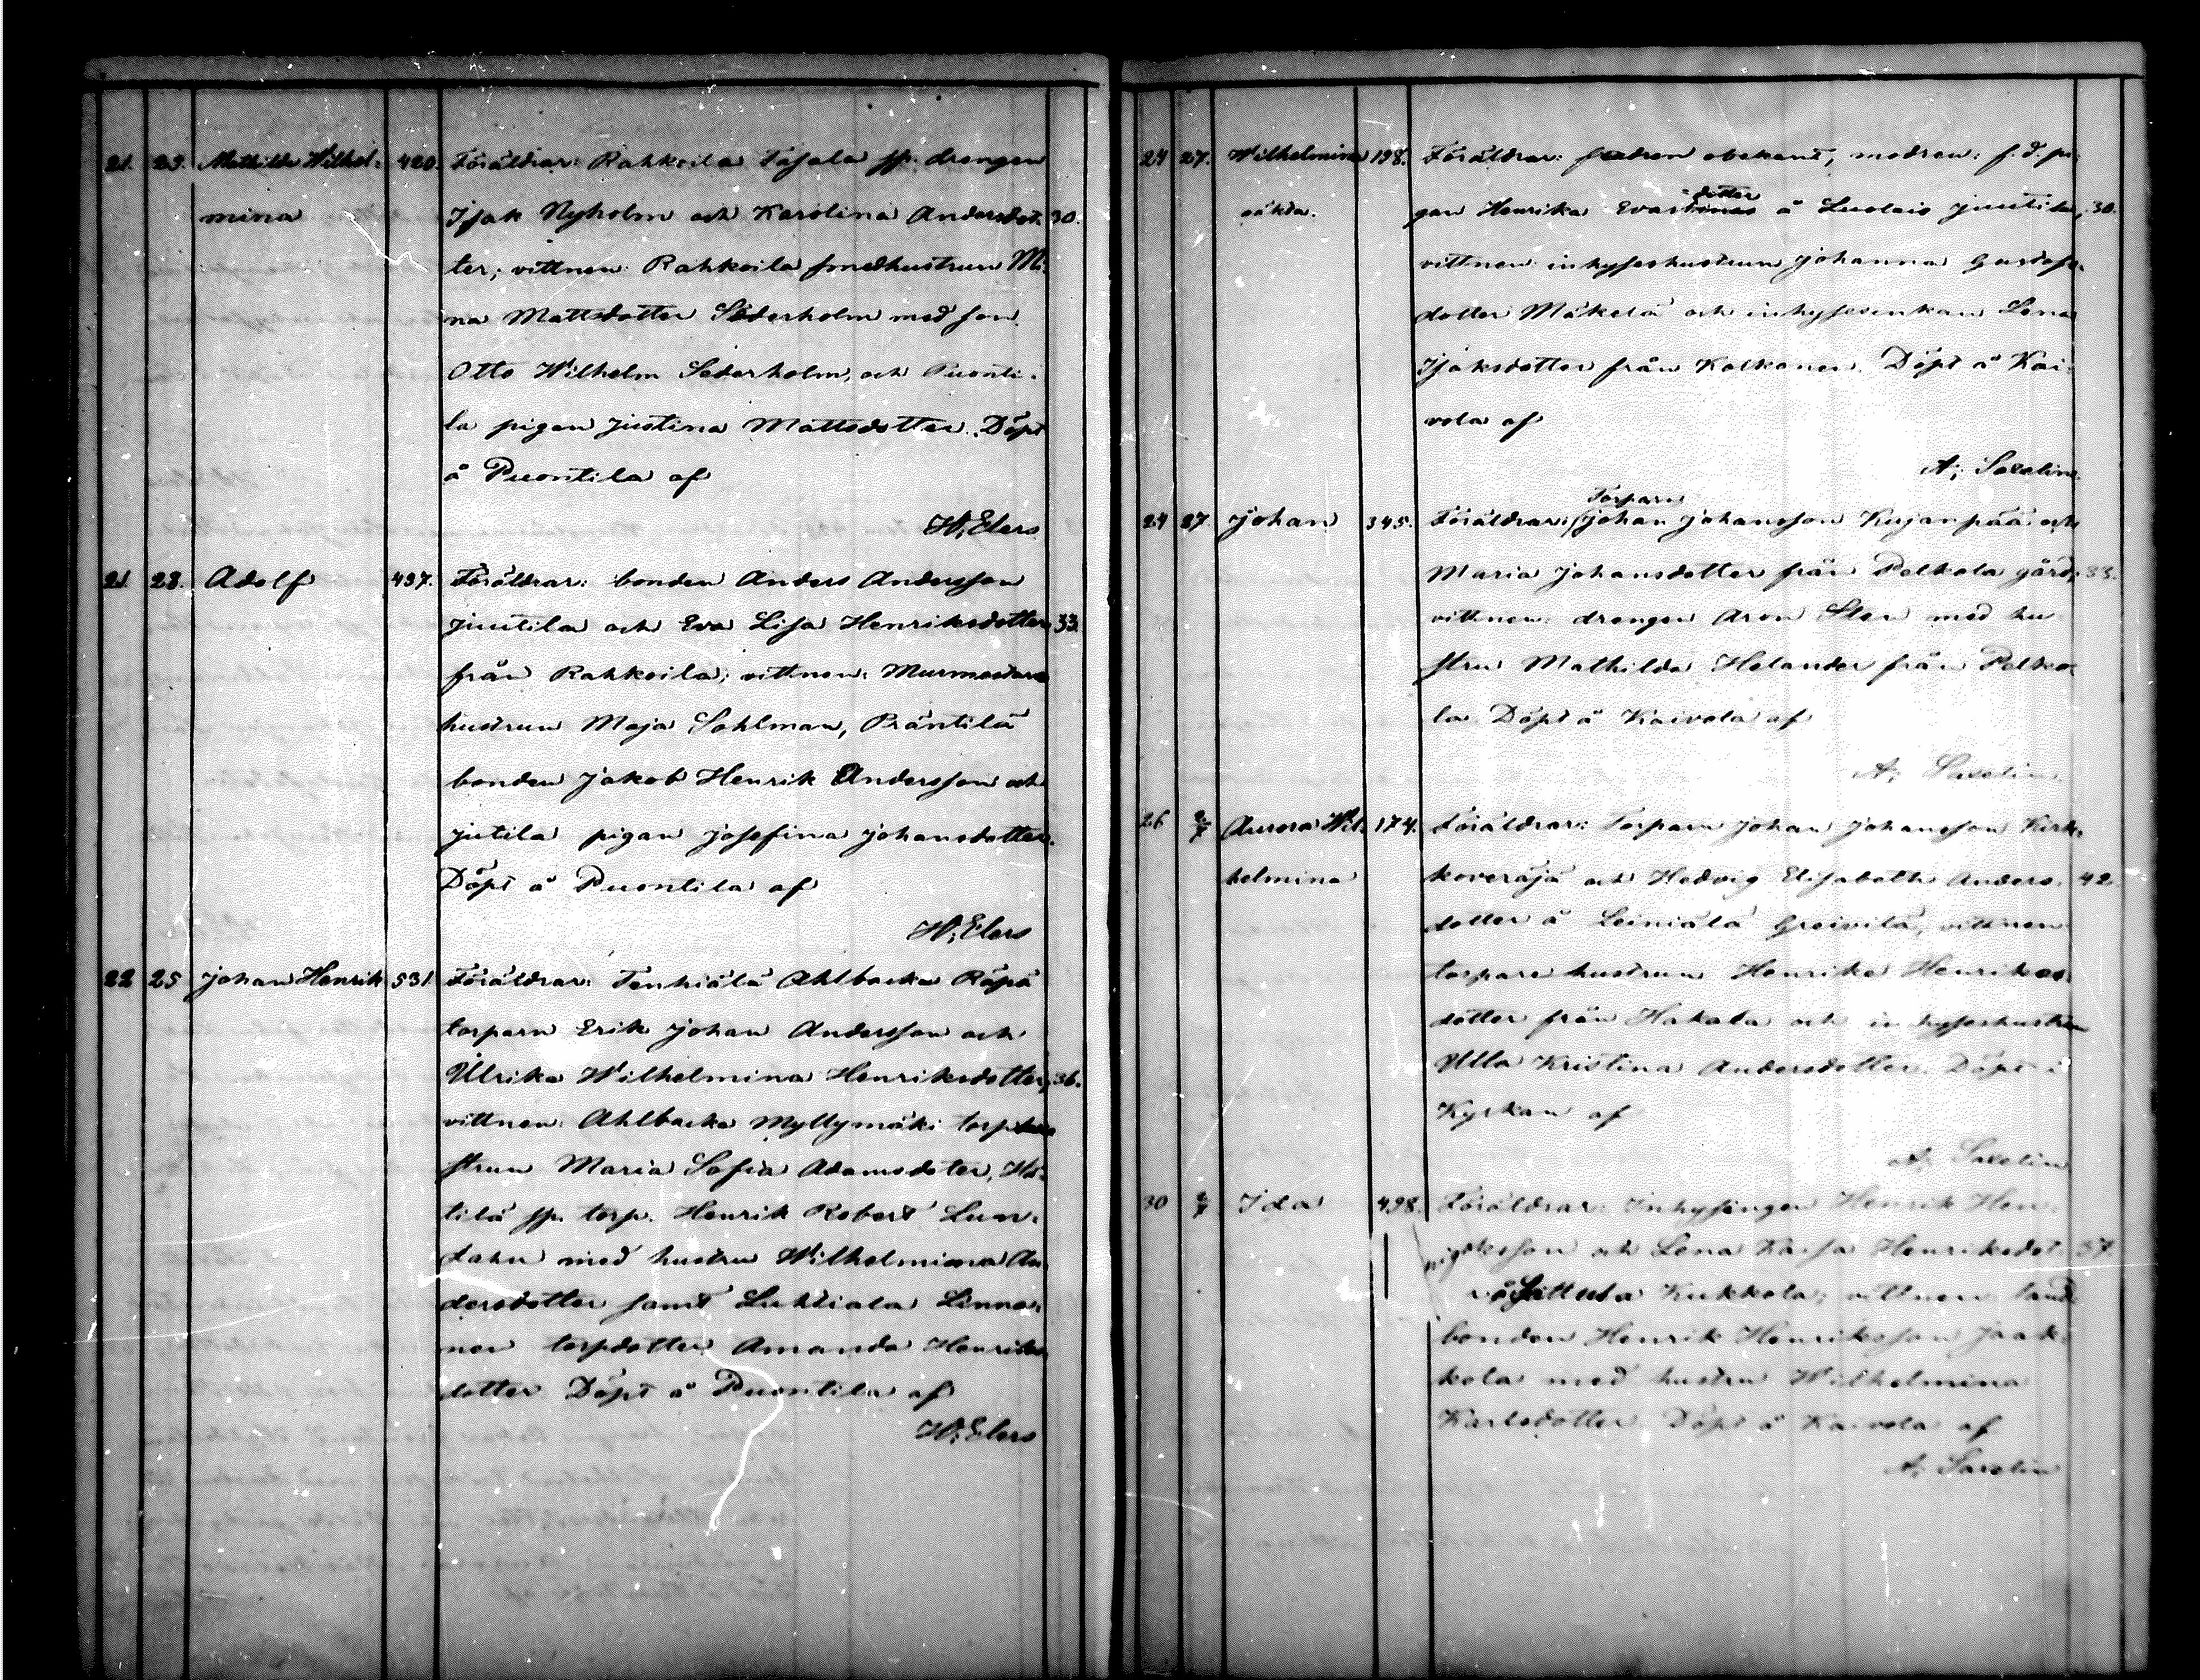 21. 23. Mathilda Wilhel- 420. Föräldrar: Rahkoila Tajala sp. drengen
mina Isak Nyholm och Karolina Andersdot- 30.
ter; vittnen: Rahkoila smedhustrun Mi-
na Mattsdotter Söderholm med son
Otto Wilhelm Söderholm, och Puonti-
la pigan Justina Mattsdotter. Döpt
å Puontila af
H; Elers
21. 23. Adolf 437. Föräldrar: bonden Anders Andersson
Juutila och Eva Lisa Henriksdotter 33.
från Rahkoila; vittnen: Murmästare
hustrun Maja Sohlman, Präntilä
bonden Jakob Henrik Andersson och
Jutila pigan Josefina Johansdotter.
Döpt å Puontila af
H; Elers
22 25 Johan Henrik 531 Föräldrar: Tenhiälä Ahlbacka Räpä
torparn Erik Johan Andersson och
Ulrika Wilhelmina Henriksdotter, 36.
vittnen: Ahlbacka Myllymäki torphu
strun Maria Sofia Adamsdoter,
tilä sp. torp. Henrik Robert Lun-
dahn med hustru Wilhelmina An
dersdotter samt Luhtiala Linna-
nen torpdotter Amanda Henriks
dotter Döpt å Puontila af
H; Elers
24 27. Wilhelmina 198. Föräldrar: fadren obekant, modren: f. d. pi-
oäkta. gan Henrika Evastina dotter å Luolais Juutila, 30.
vittnen: inhyseshustrun Johanna Gustafs-
dotter Mäkelä och inhysesenkan Lena
Isaksdotter från Kolkanen. Döpt å Kai-
vola af
A; Saxelin
Torparn
24 27 Johan 345. Föräldrar: Johan Johansson Kujanpää och
Maria Johansdotter från Pelkola gård; 33.
vittnen: drengen Aron Sten med hu
stru Mathilda Helander från Pelko-
la Döpt å Kaivola af
A; Saxelin
26 Aurora Wil- 174. Föräldrar: Torparn Johan Johansson Kirk-
helmina koveräjä och Hedvig Elisabeth Anders- 42.
dotter å Leiniälä Greivilä, vittnen
torpare hustrun Henrika Henriks-
dotter från Hakala och inhyseshustrun
Ulla Kristina Andersdotter. Döpt i
Kyrkan af
A; Saxelin
30 Ida 498. Föräldrar: Inhysingen Henrik Hen-
riksson och Lena Kaisa Henriksdot- 37.
å Sittula Kukkola; vittnen: land
bonden Henrik Henriksson Jaak-
kola med hustru Wilhelmina
Karlsdotter. Döpt å Kaivola af
A; Saxelin